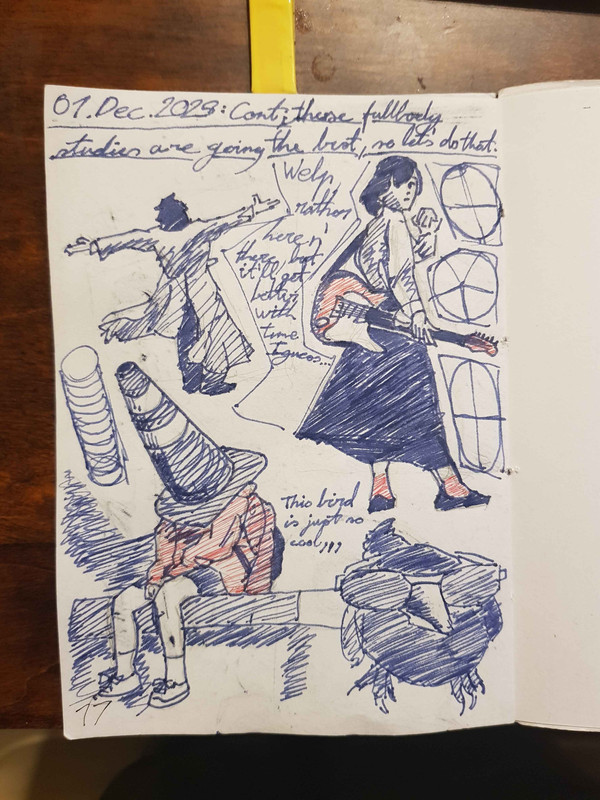 01.Dec.2023: Cont; these fullbody
studies are going the best, so let's do that.
Welp,
rather
here n'
there, but
it'll get
better
with
time
I guess...
This bird
is just so
cool,,,
17